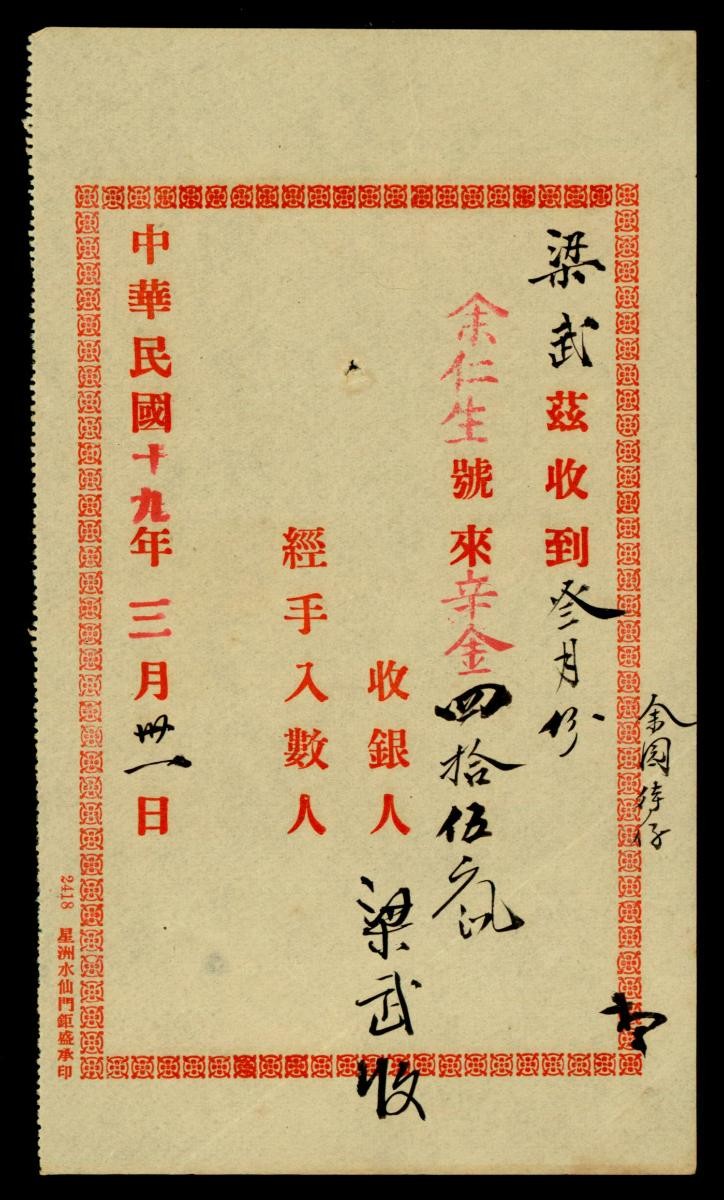 梁武茲收到叁月份
余仁生號來辛金四拾伍
收銀人梁武收
經手入數人
中華民國十九年三月卅一日
2418 星洲水仙門鉅盛承印